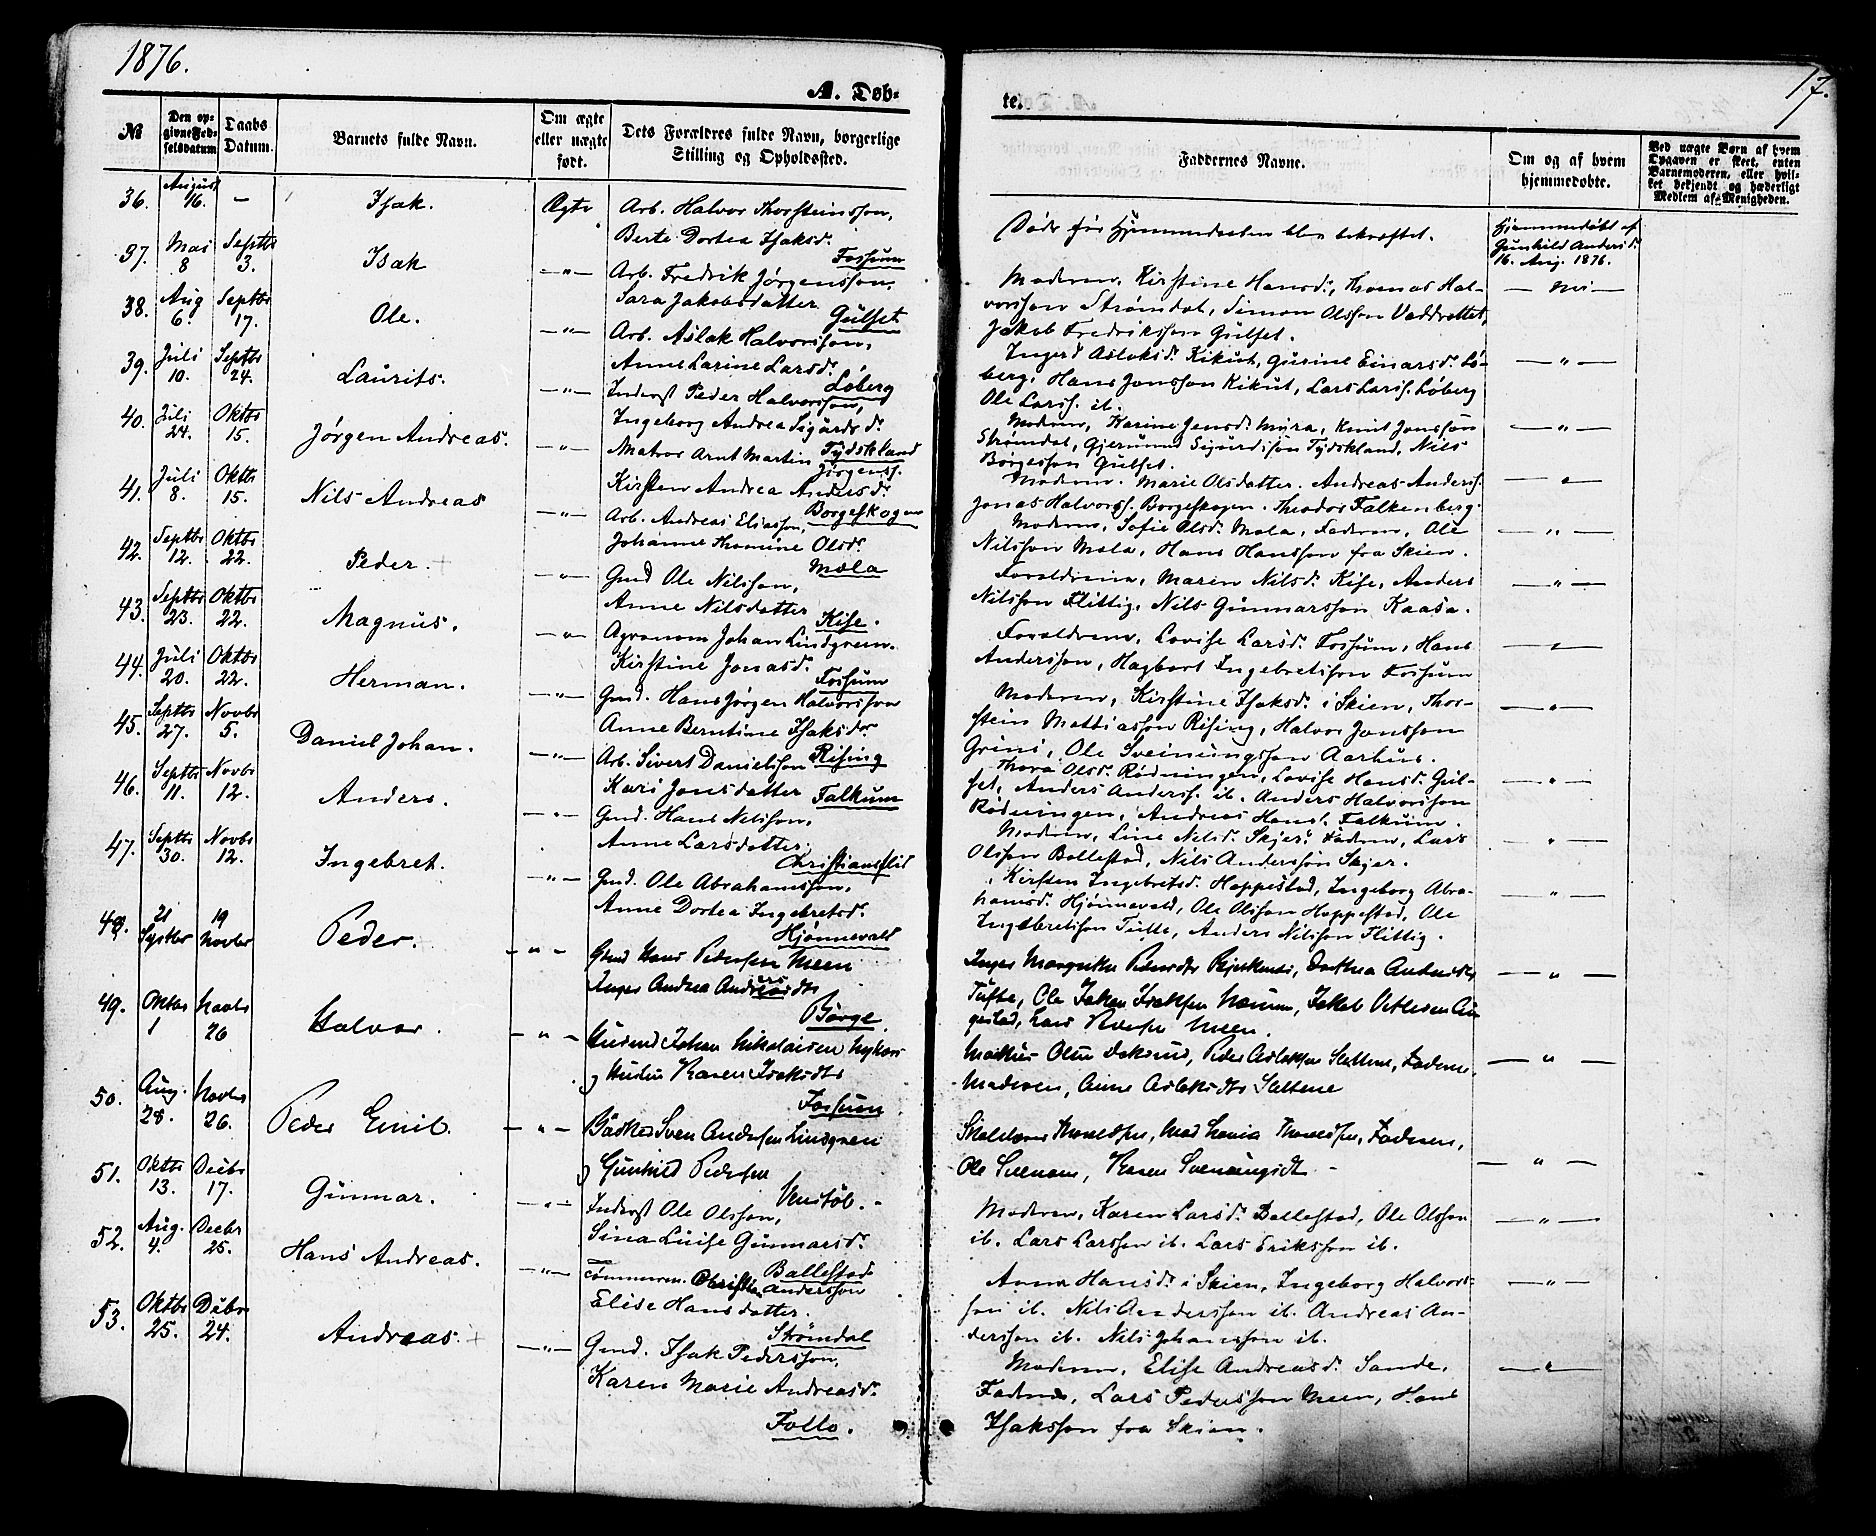 1876.
17.
A. Døb-
te.
№
Den op-
givne Fød-
selsdatum
Daabs
Datum.
Barnets fulde Navn.
Om ægte
eller uægte
født.
Dets Forældres fulde Navn, borgerlige
Stilling og Opholdssted.
Faddernes Navne.
Om og af hvem
hjemmedøbt.
Ved uægte Børn af hvem
Opgaven er skeet, enten
Barnemoderen, eller hvil-
ket bekjendt og hæderligt
Medlem af Menigheden.
36. August 16. — Isak. Ægte Arb. Halvor Thorsteinssøn,
Berte Dortea Isaksd.
Fossum
Døde før Hjemmedaaben blev bekræftet.
Hjemmedøbt af
Gunhild Andersd.
16. Aug. 1876.
37. Mai 8 Septbr 3. Isak —"— Arb. Fredrik Jørgenssøn,
Sara Jakobsdatter
Gulset
Moderen, Kirstine Hansd., Thomas Hal-
vorssøn Strømdal, Simon Olssøn Vaddrettet,
Jakob Fredrikssøn Gulset.
— Nei —
38. Aug 6. Septbr 17. Ole. —"— Arb. Aslak Halvorssøn,
Anne Larine Larsd.
Løberg
Ingerd Aslaksd. Kikut, Gurine Einarsd. Lø-
berg, Hans Jonssøn Kikut, Lars Larss. Løberg
Ole Larss. ib.
—"—
39. Juli 10. Septbr 24. Laurits. —"— Inderst Peder Halvorssøn,
Ingeborg Andrea Sigurdsd.
Tydskland
Moderen, Karine Jensd. Myra, Knut Jonssøn
Strømdal, Gjermund Sigurdssøn Tydskland, Nils
Børgessøn Gulset.
—"—
40. Juli 24. Oktbr 15. Jørgen Andreas. —"— Matros Arnt Martin Jørgenss.
Kirsten Andrea Andersd.
Borgeskogen
Moderen, Marie Olsdatter. Andreas Anderss.
Jonas Halvorss. Borgeskogen. Theodor Falkenberg.
—"—
41. Juli 8. Oktbr 15. Nils Andreas —"— Arb. Andreas Eliassøn,
Johanne Thomine Olsd.
Mæla
Moderen, Sofie Olsd. Mæla, Faderen, Ole
Nilssøn Mæla, Hans Hanssøn fra Skien.
—"—
42. Septbr 12. Oktbr 22. Peder. —"— Gmd Ole Nilssøn,
Anne Nilsdatter
Kise.
Forældrene, Maren Nilsd. Kise, Anders
Nilssøn Flittig, Nils Gunnarssøn Kaasa.
—"—
43. Septbr 23. Oktbr 22. Magnus. —"— Agronom Johan Lindgren.
Kirstine Jonasd.
Fossum
Forældrene, Lovise Larsd. Fossum, Hans
Anderssøn, Hagbart Ingebretssøn Fossum
—"—
44. Juli 20. Oktbr 22. Herman. —"— Gmd. Hans Jørgen Halvorssøn
Anne Berntine Isaksd.
Rising
Moderen, Kirstine Isaksd. i Skien, Thor-
stein Mattiassøn Rising, Halvor Jonssøn
Grini, Ole Sveinungssøn Aarhus.
—"—
45. Septbr 27. Novbr 5. Daniel Johan. —"— Arb. Sivert Danielssøn
Kari Jonsdatter
Falkum
Thora Olsd. Rødningen, Lovise Hansd. Gul-
set, Anders Anderss. ib. Anders Halvorssøn
Rødningen, Andreas Hanss. Falkum.
—"—
46. Septbr 11. Novbr 12. Anders. —"— Gmd. Hans Nilssøn,
Anne Larsdatter
Christianslid
Moderen, Line Nilsd. Skjer. Faderen, Lars
Olssøn Ballestad, Nils Anderssøn Skjer.
"
47. Septbr 30. Novbr 12. Ingebret. —"— Gmd. Ole Abrahamssøn,
Anne Dortea Ingebretsd.
Hjønnevald
Kirsten Ingebretsd. Hoppestad, Ingeborg Abra-
hamsd. Hjønnevald, Ole Olssøn Hoppestad, Ole
Ingebretssøn Tufte, Anders Nilssøn Flittig.
—"—
48. 21 Septbr 19 Novbr Peder. —"— Gmd Hans Pedersen Meen
Inger Andrea Andersdtr
Børge
Inger Margrethe, Dorthea
Tufte, Ole Johan Isaksen, Jakob
Lars Meen.
—"—
49. Oktbr 1 Novbr 26 Halvor. —"— Johan Nikolaisen
Karen Isaksdtr
Fossum
Olsen, Peder Aslaksen, Faderen,
Moderen, Anne Aslaksdtr
—"—
50. Aug. 28. Novbr 26. Peder Emil. —"— Bødker Sven Andersen Lindgren
og Gunhild Pedersen
Venstøb.
Thovaldsen, Mad Thovaldsen, Faderen,
Ole, Karen
—"—
51. Oktbr 13. Decbr 17. Gunnar. —"— Inderst Ole Olssøn,
Sina Luise Gunnarsd.
Ballestad
Moderen, Karen Larsd. Ballestad, Ole Olssøn
ib. Lars Larssøn ib. Lars Erikssøn ib.
—"—
52. Aug. 4. Decbr 25. Hans Andreas. —"— Tømmerm. Christian Anderssøn
Elise Hansdatter.
Strømdal
Anna Hansd. i Skien, Ingeborg Halvors-
søn ib. Nils Anderssøn ib. Andreas An-
derssøn ib. Nils Johanssøn ib.
—"—
53. Oktbr 25. Dcbr 24. Andreas. —"— Gmd. Isak Pederssøn,
Karen Marie Andreasd.
Follo.
Moderen, Elise Andreasd. Sande,
Faderen, Lars Pederssøn Meen, Hans
Isakssøn fra Skien.
—"—